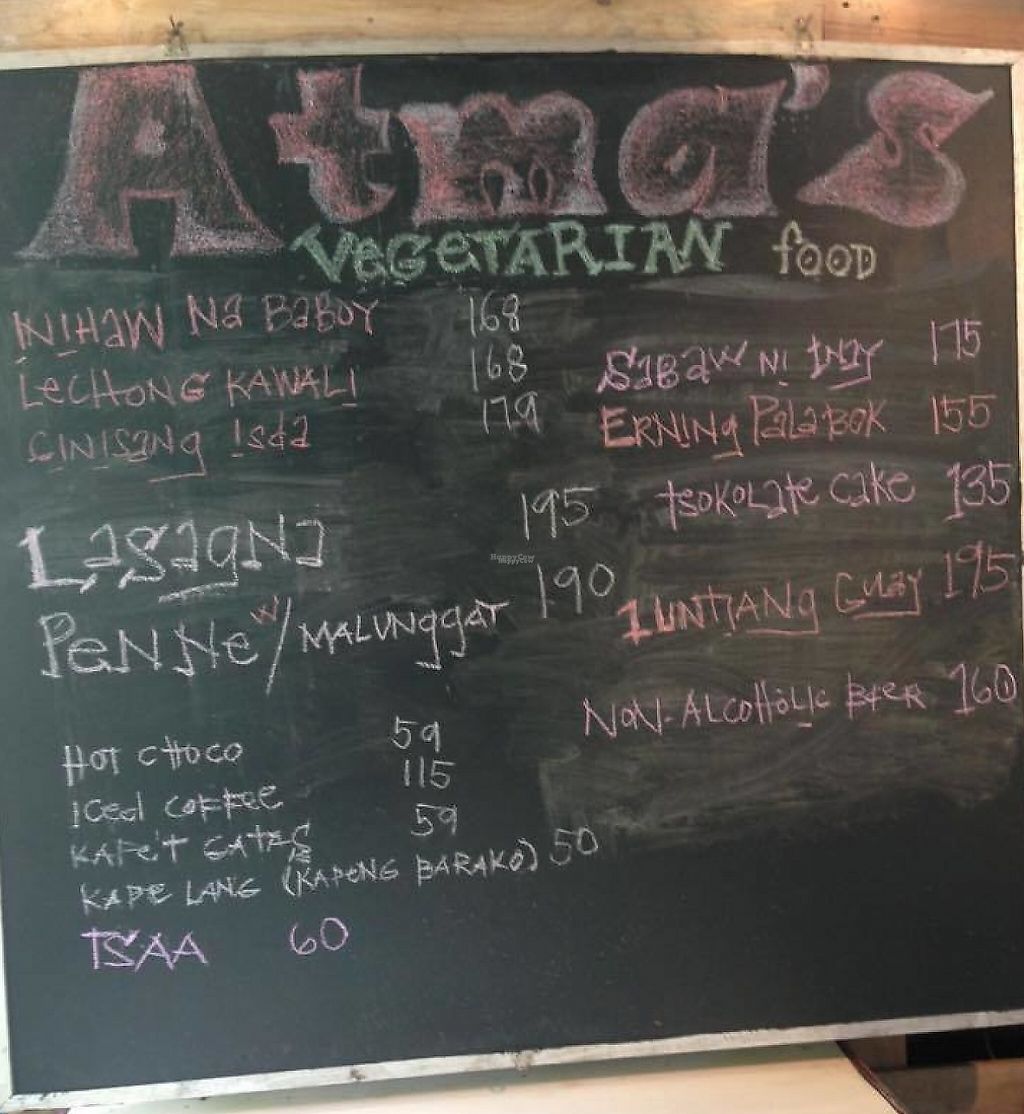 Atma's
VEGETARIAN FOOD
INIHAW NA BABOY 168
LECHONG KAWALI 168
SINISANG ISDA 179
LASAGNA 195
PENNE W/ MALUNGGAY 190
HOT CHOCO 59
ICED COFFEE 115
KAPE'T GATAS 59
KAPE LANG (KAPENG BARAKO) 50
TSAA 60
SABAW NI INAY 175
ERNING PALABOK 155
TSOKOLATE CAKE 135
LUNTIANG GULAY 195
NON-ALCOHOLIC BEER 160
HappyCow